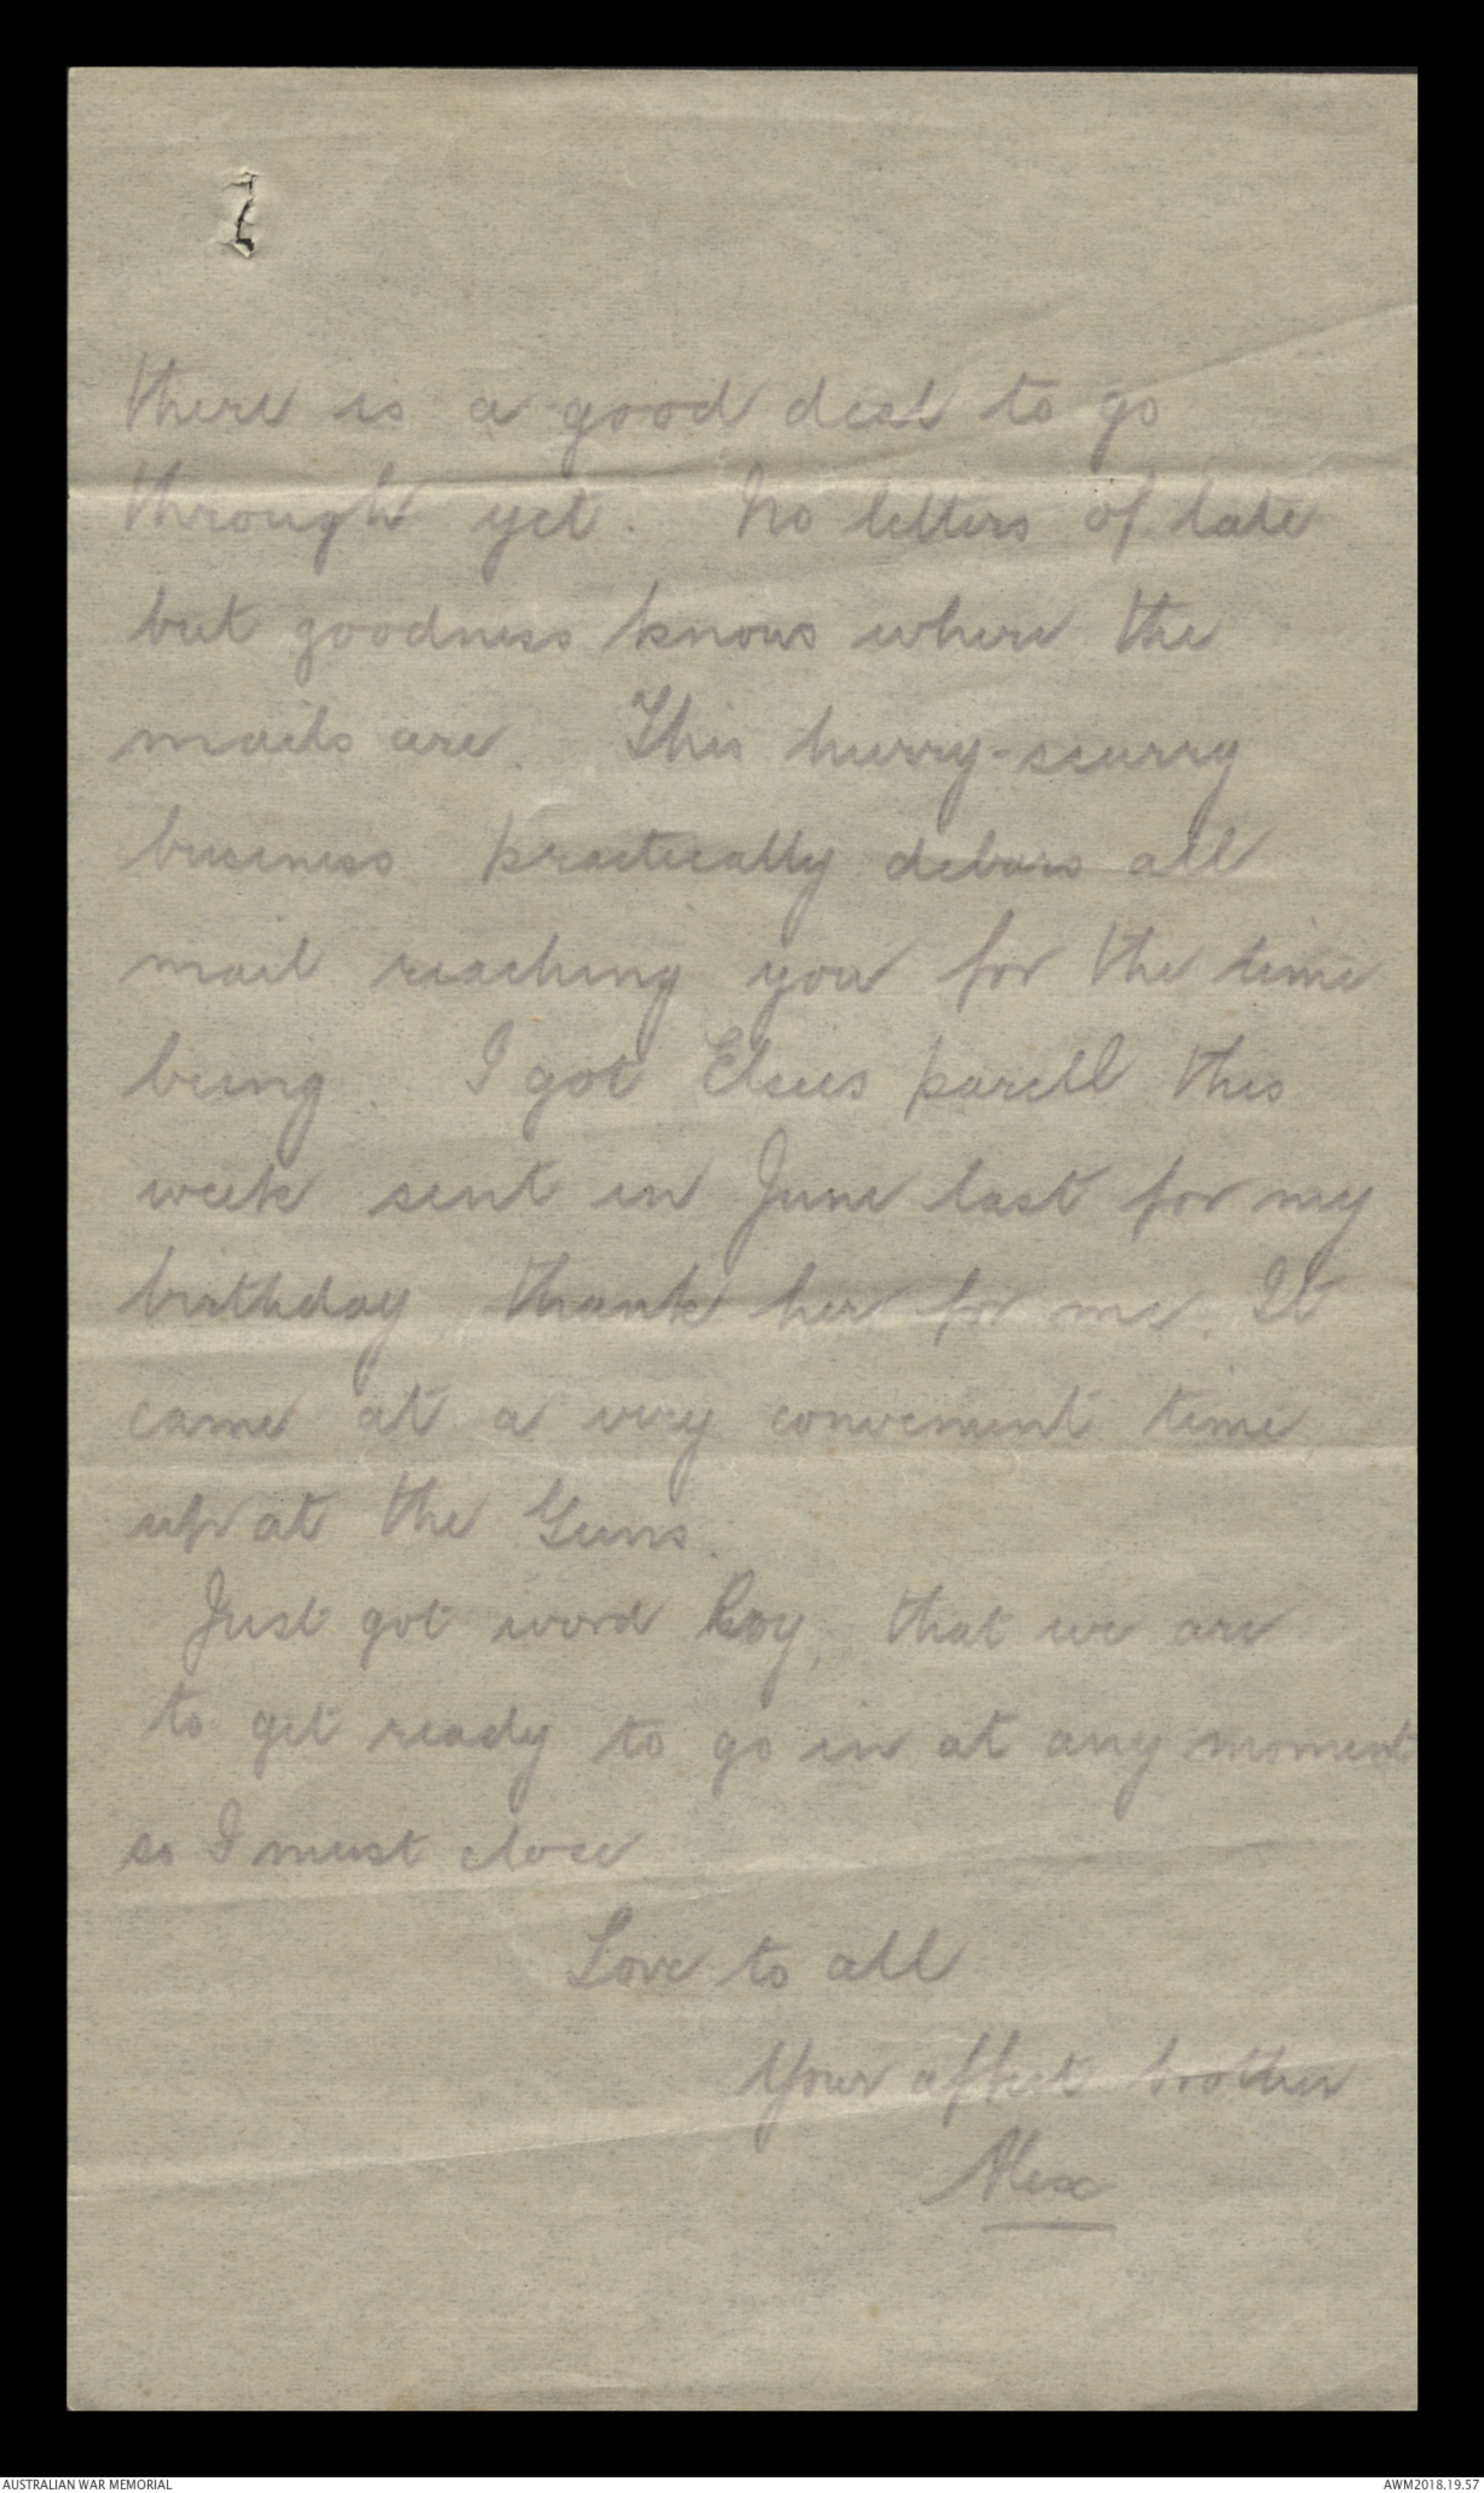 there is a good deal to go
through yet. No letters of late
but goodness knows where the
mails are. This hurry-scurry
business practically debars all
mail reaching you for the time
being. I got Elsies parcel this
week sent in June last for my
birthday, thank her for me. It
came at a very convenient time,
up at the Guns.
Just got word Roy, that we are
to get ready to go in at any moment
so I must close
Love to all
Your affect brother
Alex
AUSTRALIAN WAR MEMORIAL
AWM2018.19.57